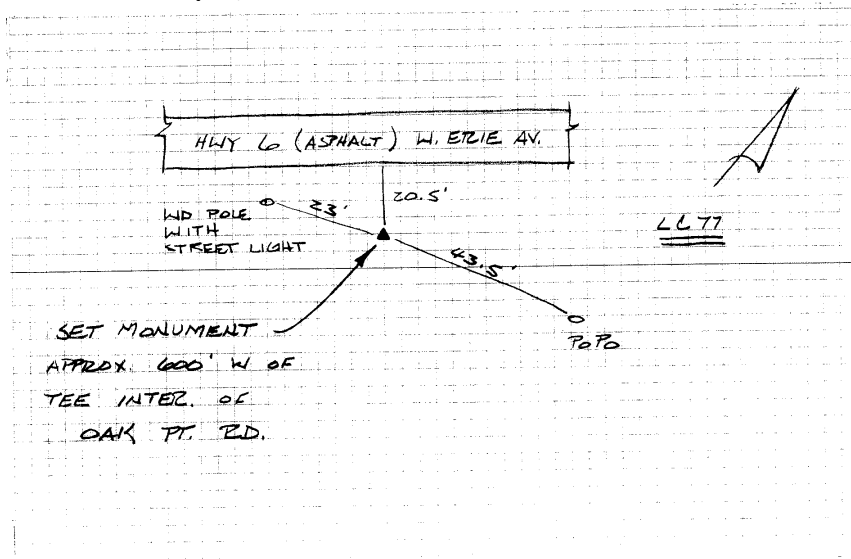 HWY 6 (ASPHALT) W. ERIE AV.
20.5'
23'
WD POLE
WITH
STREET LIGHT
LC 77
43.5'
POPO
SET MONUMENT
APPROX. 600' W OF
TEE INTER. OF
OAK PT. RD.